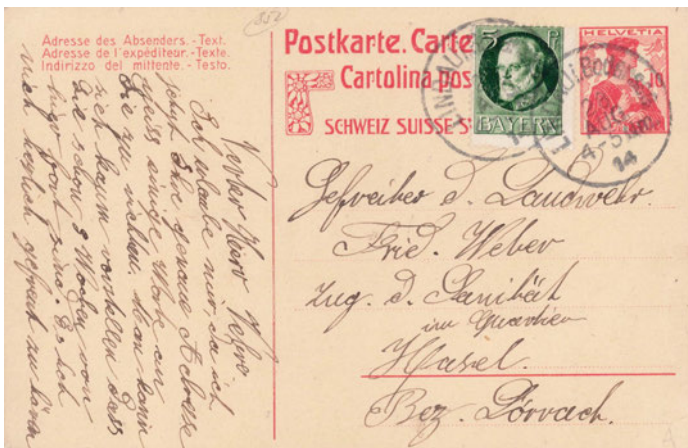 352
Adresse des Absenders. - Text.
Adresse de l'expéditeur. - Texte.
Indirizzo del mittente. - Testo.
Postkarte. Carte
Cartolina pos
SCHWEIZ SUISSE S
5 Pf
BAYERN
HELVETIA
10
LINDAU
Bodensee
4-5
14
Gefreiter d. Landwehr.
Fried. Weber
Zug. d. Sanität
im Quartier
Hasel.
Bez. Lörrach.
Lieber Herr
Ich erlaube mir, da ich
jetzt Ihre genaue Adresse
einige Worte an
Sie zu richten. Man kann
sich kaum vorstellen dass
Sie schon 3 Wochen von
hier fort sind. Es hat
mich herzlich gefreut zu hören